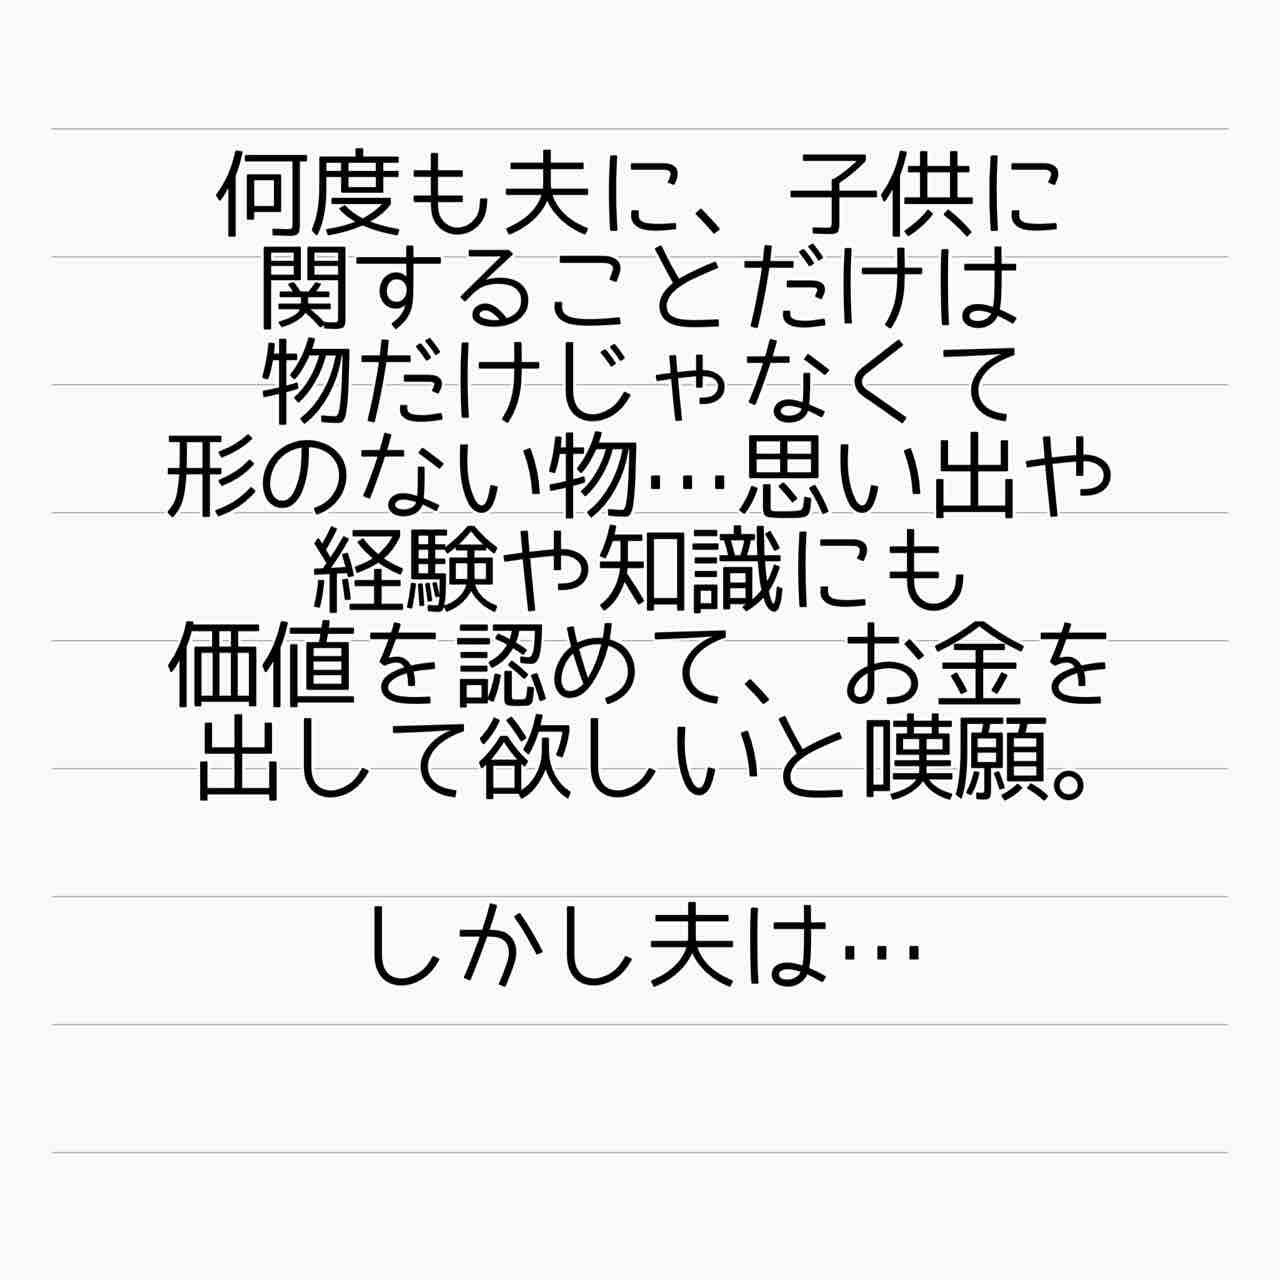 何度も夫に、子供に
関することだけは
物だけじゃなくて
形のない物…思い出や
経験や知識にも
価値を認めて、お金を
出して欲しいと嘆願。
しかし夫は…